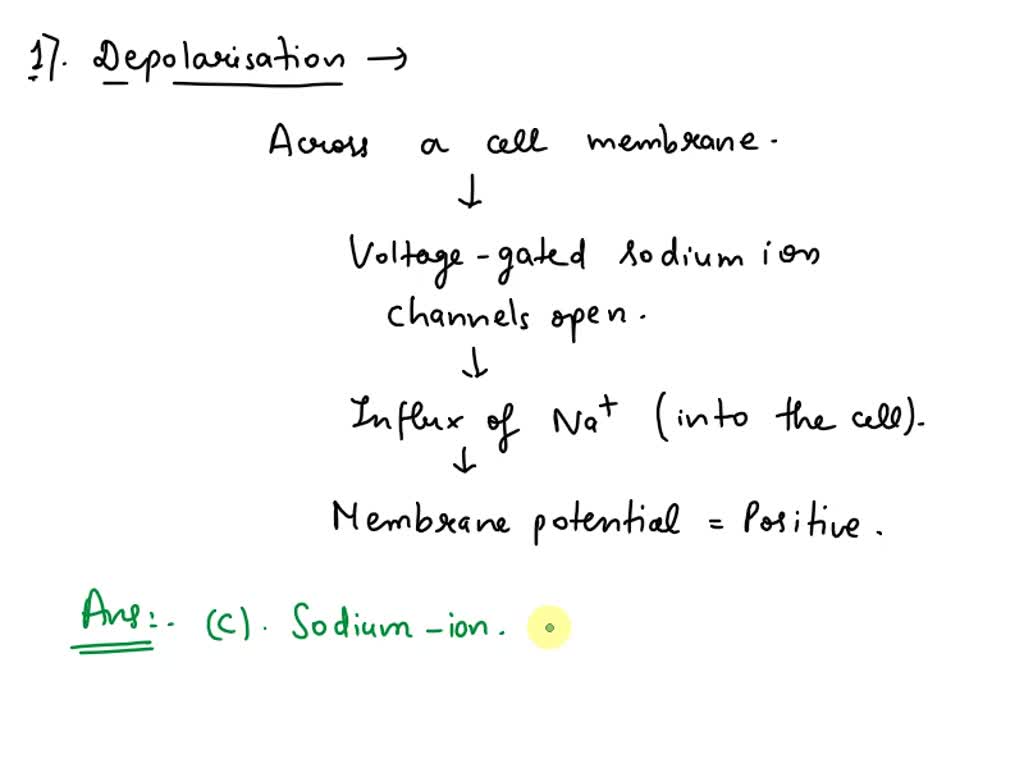 1). Depolarisation →
Across a cell membrane.
↓
Voltage-gated sodium ion
channels open.
↓
Influx of Na⁺ (into the cell).
↓
Membrane potential = Positive.
Ans:. (C). Sodium-ion.